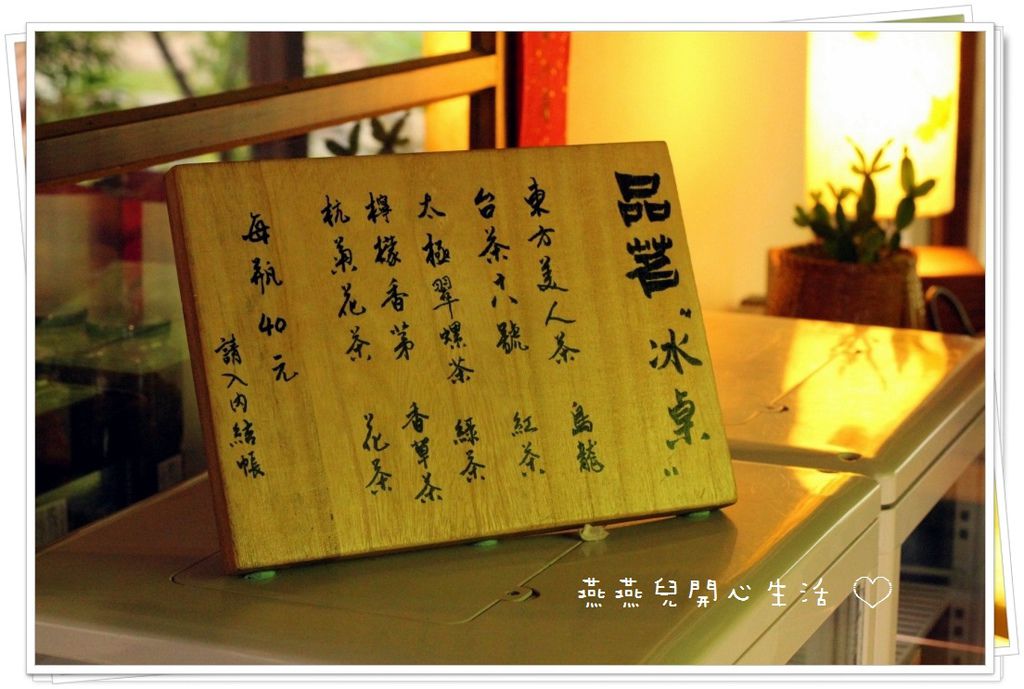 品茗"冰桌"
東方美人茶 烏龍
台茶十八號 紅茶
太極翠螺茶 綠茶
檸檬香茅 香草茶
杭菊花茶 花茶
每瓶40元
請入內結帳
燕燕兒開心生活